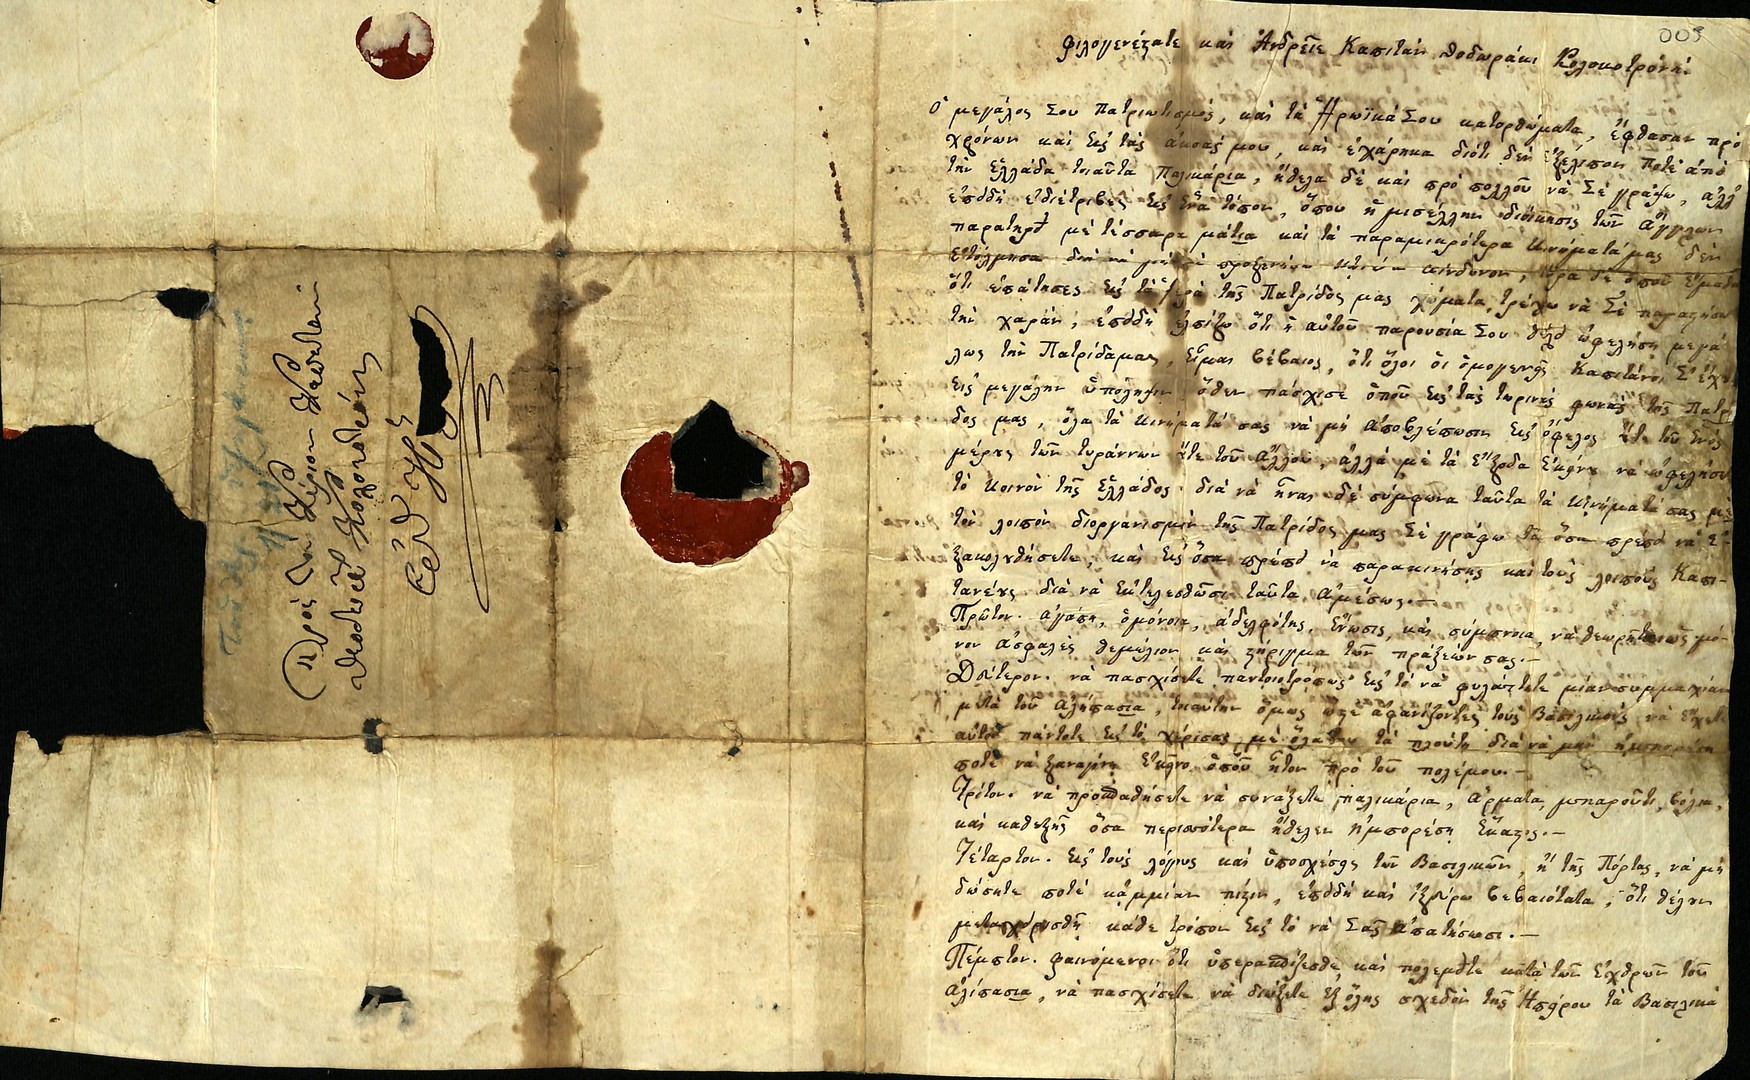 005
Φιλογενέςατε και Ἀνδρεῖε Καπιτάν Θοδωράκι Κολοκοτρόνη.
ὁ μεγάλος Σου Πατριωτισμός, και τὰ Ἡρωϊκά Σου κατορθώματα, ἔφθασαν πρὸ
χρόνων και εἰς τὰς ἀκοάς μου, και ἐχάρηκα διότι δεν ἐξέλιπον ποτὲ ἀπὸ
τὴν Ἑλλάδα τοιαῦτα Παλικάρια, ἤθελα δὲ και πρὸ πολλοῦ νὰ Σὲ γράψω, ἀλλ'
ἐπειδὴ ἐδιέτριβες εἰς ἕνα τόπον, ὅπου ἡ μισέλλην διοίκησις τῶν Ἄγγλων
παρατηρεῖ με τέσσαρα μάτια και τὰ παραμικρότερα κινήματά μας δὲν
ἐτόλμησα διὰ νὰ μὴ σὲ προξενήσω κίνδυνον, τώρα δὲ ὁποῦ ἔμαθα
ὅτι ἐπάτησες εἰς τὰ ἱερὰ τῆς Πατρίδος μας χώματα, τρέχω νὰ Σὲ
τὴν χαράν, ἐπειδὴ ἐλπίζω ὅτι ἡ αὐτοῦ παρουσία Σου θέλει ὠφελήση μεγά-
λως τὴν Πατρίδα μας, εἶμαι βέβαιος, ὅτι ὅλοι οἱ ὁμογενεῖς Καπιτάνοι Σ' ἔχουν
εἰς μεγάλην ὑπόληψιν ὅθεν πάσχισε ὁποῦ εἰς τὰς τωρινὰς φωνὰς τῆς Πατρί
δος μας, ὅλα τὰ κινήματά σας νὰ μὴ ἀποβλέπωσιν εἰς ὄφελος οὔτε τοῦ ἑνὸς
μέρους τῶν τυράννων οὔτε τοῦ ἄλλου, ἀλλὰ με τὰ ἔξοδα ἐκείνων νὰ ὠφελήσουν
τὸ κοινὸν τῆς Ἑλλάδος. διὰ νὰ ἦναι δὲ σύμφωνα ταῦτα τὰ κινήματά σας με
τὸν λοιπὸν διοργανισμὸν τῆς Πατρίδος μας Σὲ γράφω τὰ ὅσα πρέπει νὰ ἐ-
ξακολουθήσετε, και εἰς ὅσα πρέπει νὰ παρακινήσης και τοὺς λοιποὺς Καπι-
τανέους διὰ νὰ ἐκτελεσθῶσι ταῦτα ἀμέσως.—
Πρῶτον. ἀγάπη, ὁμόνοια, ἀδελφότης, ἕνωσις, και σύμπνοια, νὰ θεωρῆται ὡς μό-
νον ἀσφαλὲς θεμέλιον και ςήριγμα τῶν πράξεών σας.—
Δεύτερον. νὰ πασχίσετε παντοιοτρόπως εἰς τὸ νὰ φυλάττετε μίαν συμμαχίαν
μετὰ τοῦ Ἀλήπασια, τοιαύτην ὅμως ὥςε ἀφανίζοντες τοὺς Βασιλικοὺς νὰ ἔχετε
αὐτὸν πάντοτε εἰς τὸ χέρι σας με ὅλα του τὰ πλούτη διὰ νὰ μὴν ἠμπορέση
ποτὲ νὰ ξαναγίνη ἐκεῖνο ὁποῦ ἦτον πρὸ τοῦ πολέμου.—
Τρίτον. νὰ προσπαθήσετε νὰ συνάξετε παλικάρια, ἄρματα, μπαροῦτι, βόλια,
και καθεξῆς ὅσα περισσότερα ἤθελεν ἠμπορέση ἕκαςος.—
Τέταρτον. εἰς τοὺς λόγους και ὑποσχέσεις τῶν Βασιλικῶν, ἢ τῆς Πόρτας, νὰ μὴ
δώσητε ποτὲ κἀμμίαν πίςιν, ἐπειδὴ και ἰξεύρω βεβαιότατα, ὅτι θέλουν
μεταχειρισθῆ κάθε τρόπον εἰς τὸ νὰ Σᾶς ἀπατήσωσι.—
Πέμπτον. φαινόμενοι ὅτι ὑπερασπίζεσθε, και πολεμεῖτε κατὰ τῶν ἐχθρῶν τοῦ
Ἀλίπασια, νὰ πασχίσετε νὰ διώξετε ἐξ ὅλης σχεδὸν τῆς Ἠπείρου τὰ Βασιλικὰ
Πρὸς τὸν Κύριον Καπετὰν
Θεόδωρον Κολοκοτρόνην